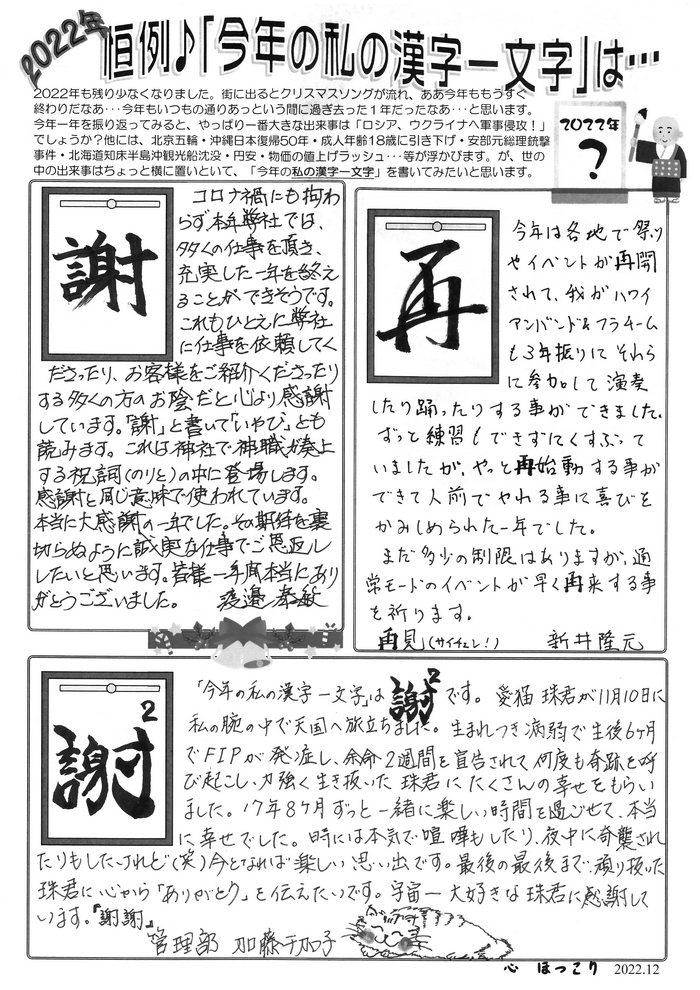 2022年
恒例♪「今年の私の漢字一文字」は…
2022年も残り少なくなりました。街に出るとクリスマスソングが流れ、ああ今年ももうすぐ
終わりだなあ・・・今年もいつもの通りあっという間に過ぎ去った1年だったなあ・・・と思います。
今年一年を振り返ってみると、やっぱり一番大きな出来事は「ロシア、ウクライナへ軍事侵攻！」
でしょうか？他には、北京五輪・沖縄日本復帰50年・成人年齢18歳に引き下げ・安部元総理銃撃
事件・北海道知床半島沖観光船沈没・円安・物価の値上げラッシュ・・・等が浮かびます。が、世の
中の出来事はちょっと横に置いといて、「今年の私の漢字一文字」を書いてみたいと思います。
2022年
?
謝
コロナ禍にも拘わ
らず本年弊社では、
多くの仕事を頂き、
充実した一年を終え
ることができそうです。
これもひとえに弊社
に仕事を依頼してく
ださったり、お客様をご紹介くださったり
する多くの方のお陰だと心より感謝
しています。「謝」と書いて「いやび」とも
読みます。これは神社で神職が奏上
する祝詞(のりと)の中に登場します。
感謝と同じ意味で使われています。
本当に大感謝の一年でした。その期待を裏
切らぬように誠実な仕事でご恩返し
したいと思います。皆様一年間本当にあり
がとうございました。 渡邉 泰敏
再
今年は各地で祭り
やイベントが再開
されて、我がハワイ
アンバンド&フラチーム
も3年振りにそれら
に参加して演奏
したり踊ったりする事ができました。
ずっと練習もできずにくすぶって
いましたが、やっと再始動する事が
できて人前でやれる事に喜びを
かみしめられた一年でした。
まだ多少の制限はありますが、通
常モードのイベントが早く再来する事
を祈ります。
再見(サイチェン!) 新井隆元
謝2
「今年の私の漢字一文字」は謝2です。愛猫 珠君が11月10日に
私の腕の中で天国へ旅立ちました。生まれつき病弱で生後6ヶ月
でFIPが発症し、余命2週間を宣告されて何度も奇跡を呼
び起こし、力強く生き抜いた 珠君にたくさんの幸せをもらい
ました。17年8ヶ月ずっと一緒に楽しい時間を過ごせて、本当
に幸せでした。時には本気で喧嘩もしたり、夜中に奇襲され
たりもしたけれど(笑)今となれば楽しい思い出です。最後の最後まで頑り抜いた
珠君に心から「ありがとう」を伝えたいです。宇宙一大好きな珠君に感謝して
います。『謝謝』
管理部 加藤千加子
心 ほっこり 2022.12